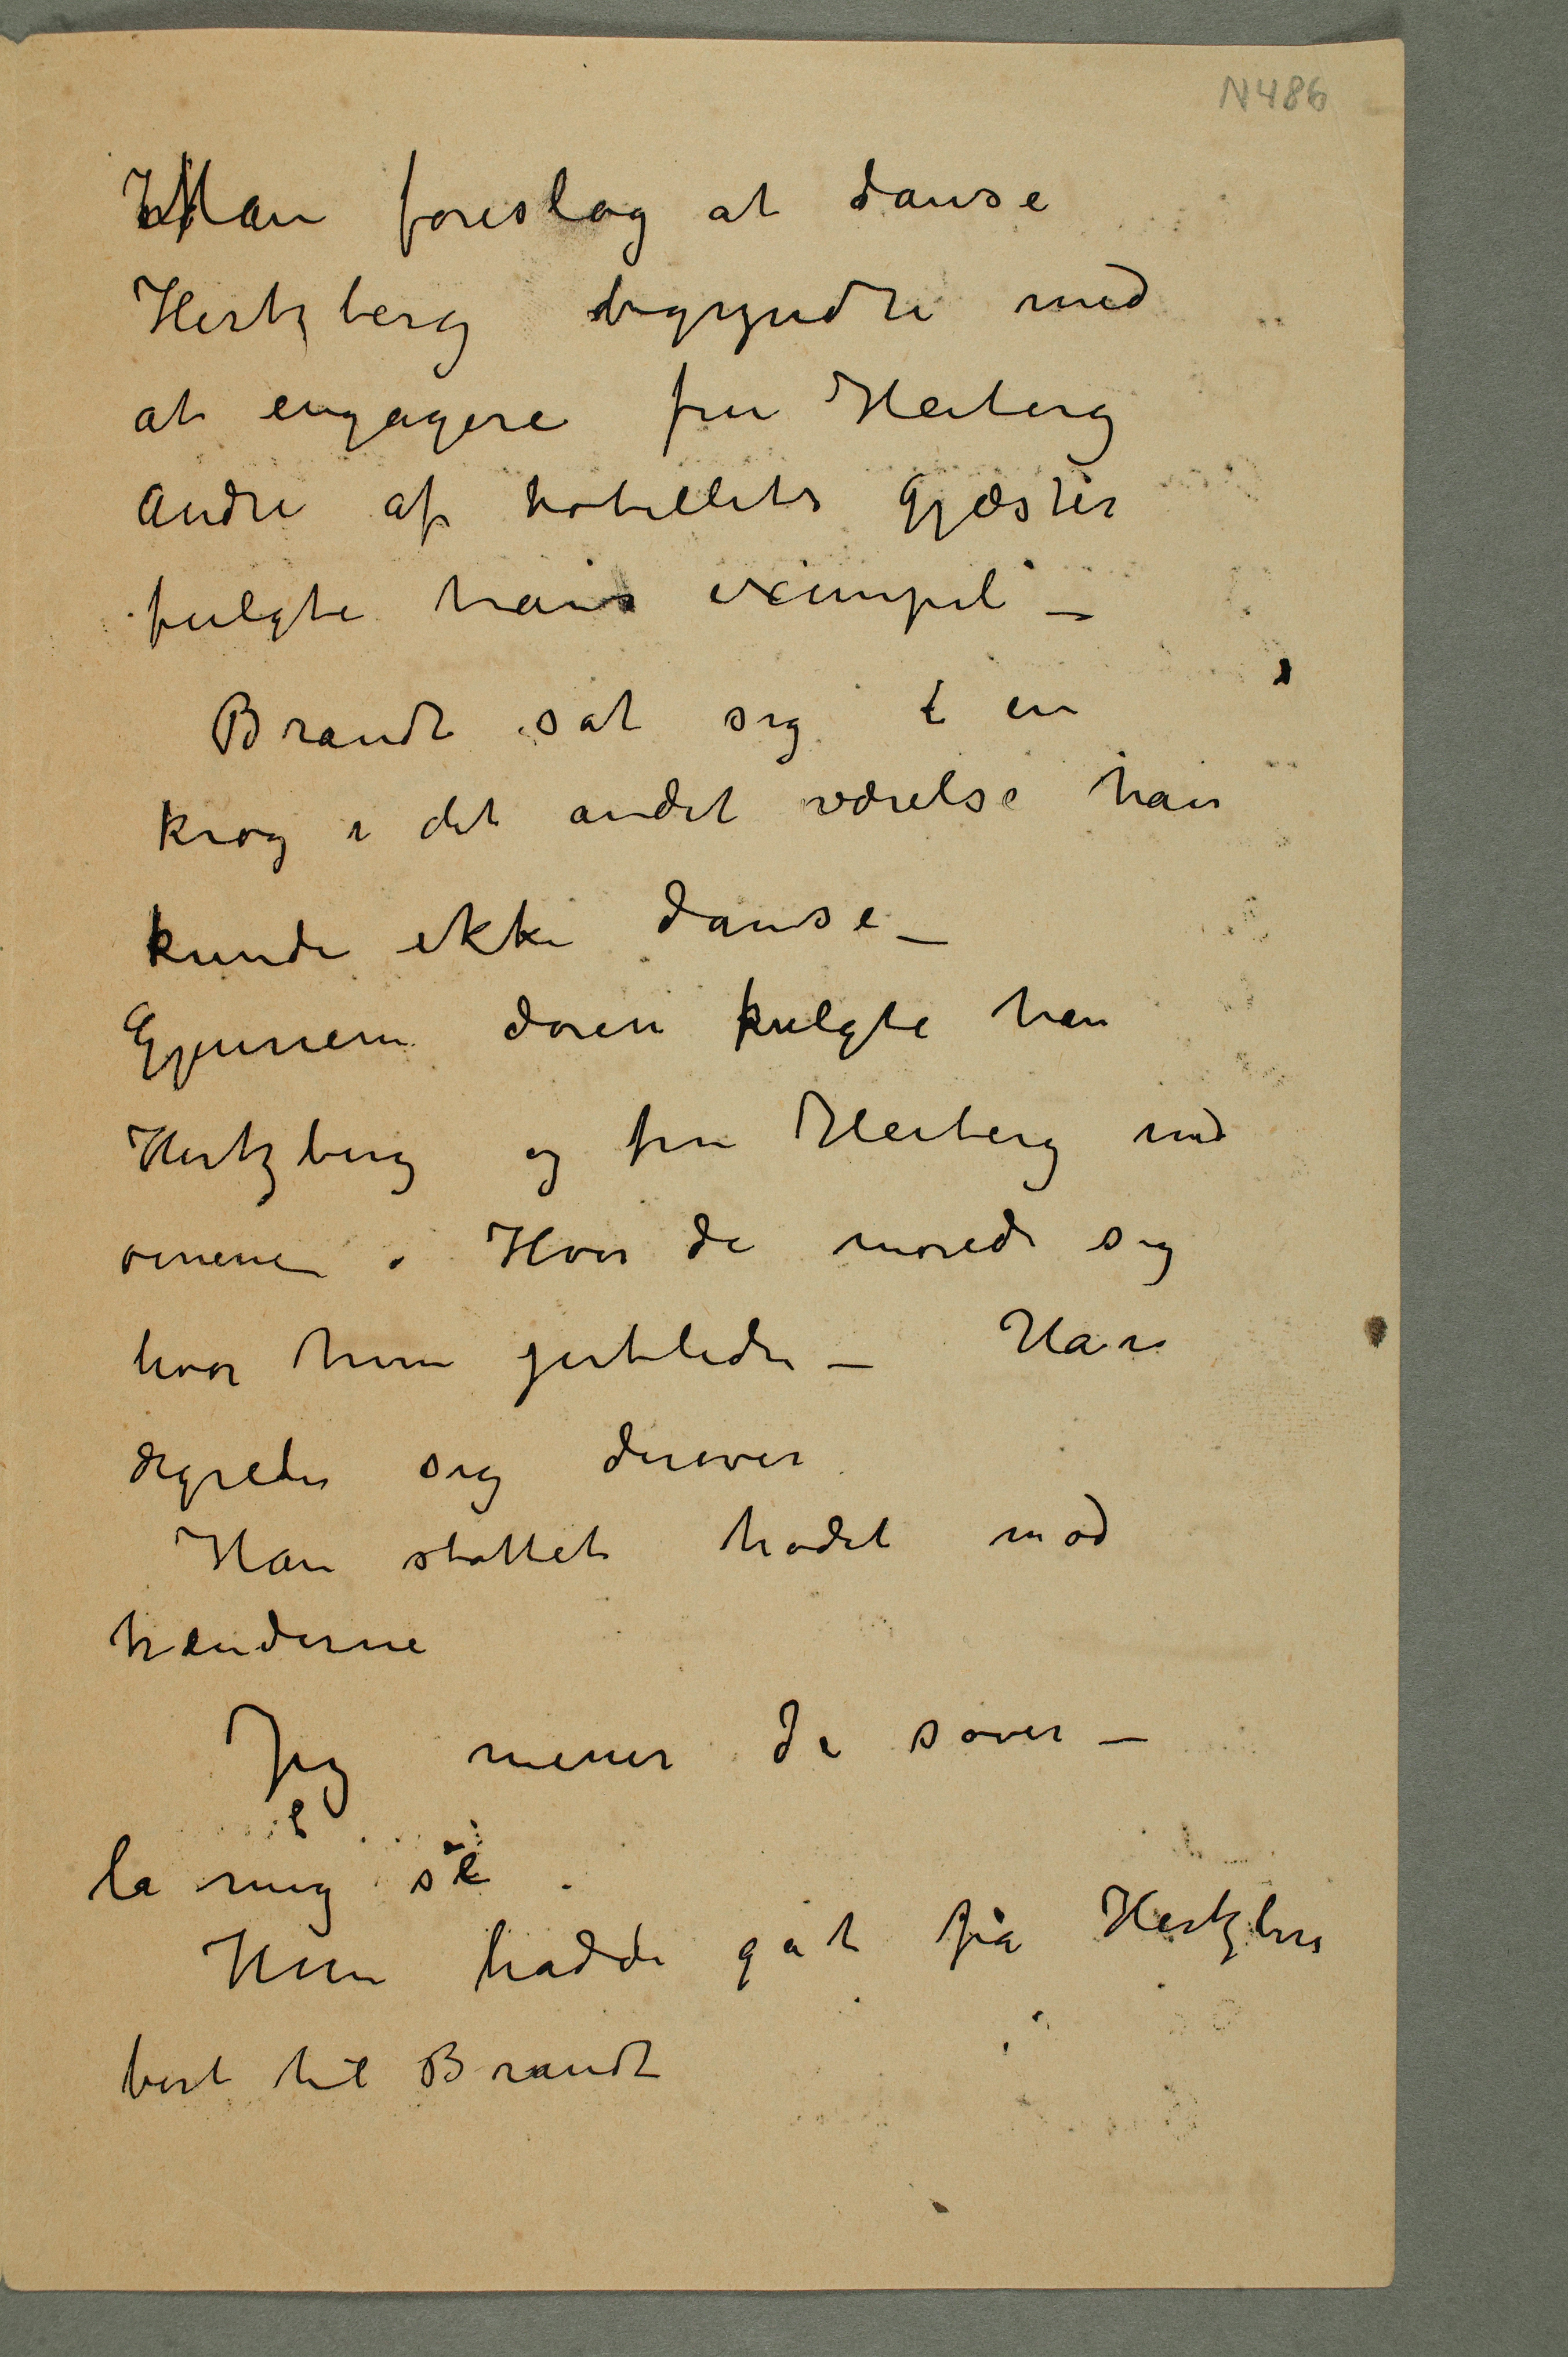 N486
Man foreslog at danse
Hertzberg begyndte med
at engagere fru Heiberg
Andre af hotellets gjæster
fulgte hans exempel –
Brandt sat sig i en
krog i det andet værelse han
kunde ikke danse –
Gjennem døren fulgte han
Hertzberg og fru Heiberg med
øinene. Hvor de morede sig
hvor hun smilede – Han
ærgrede sig derover
Han støttet hodet mod
hænderne
Jeg mener De sover –
la mig se
Hun hadde gåt fra Hertzberg
bort til Brandt